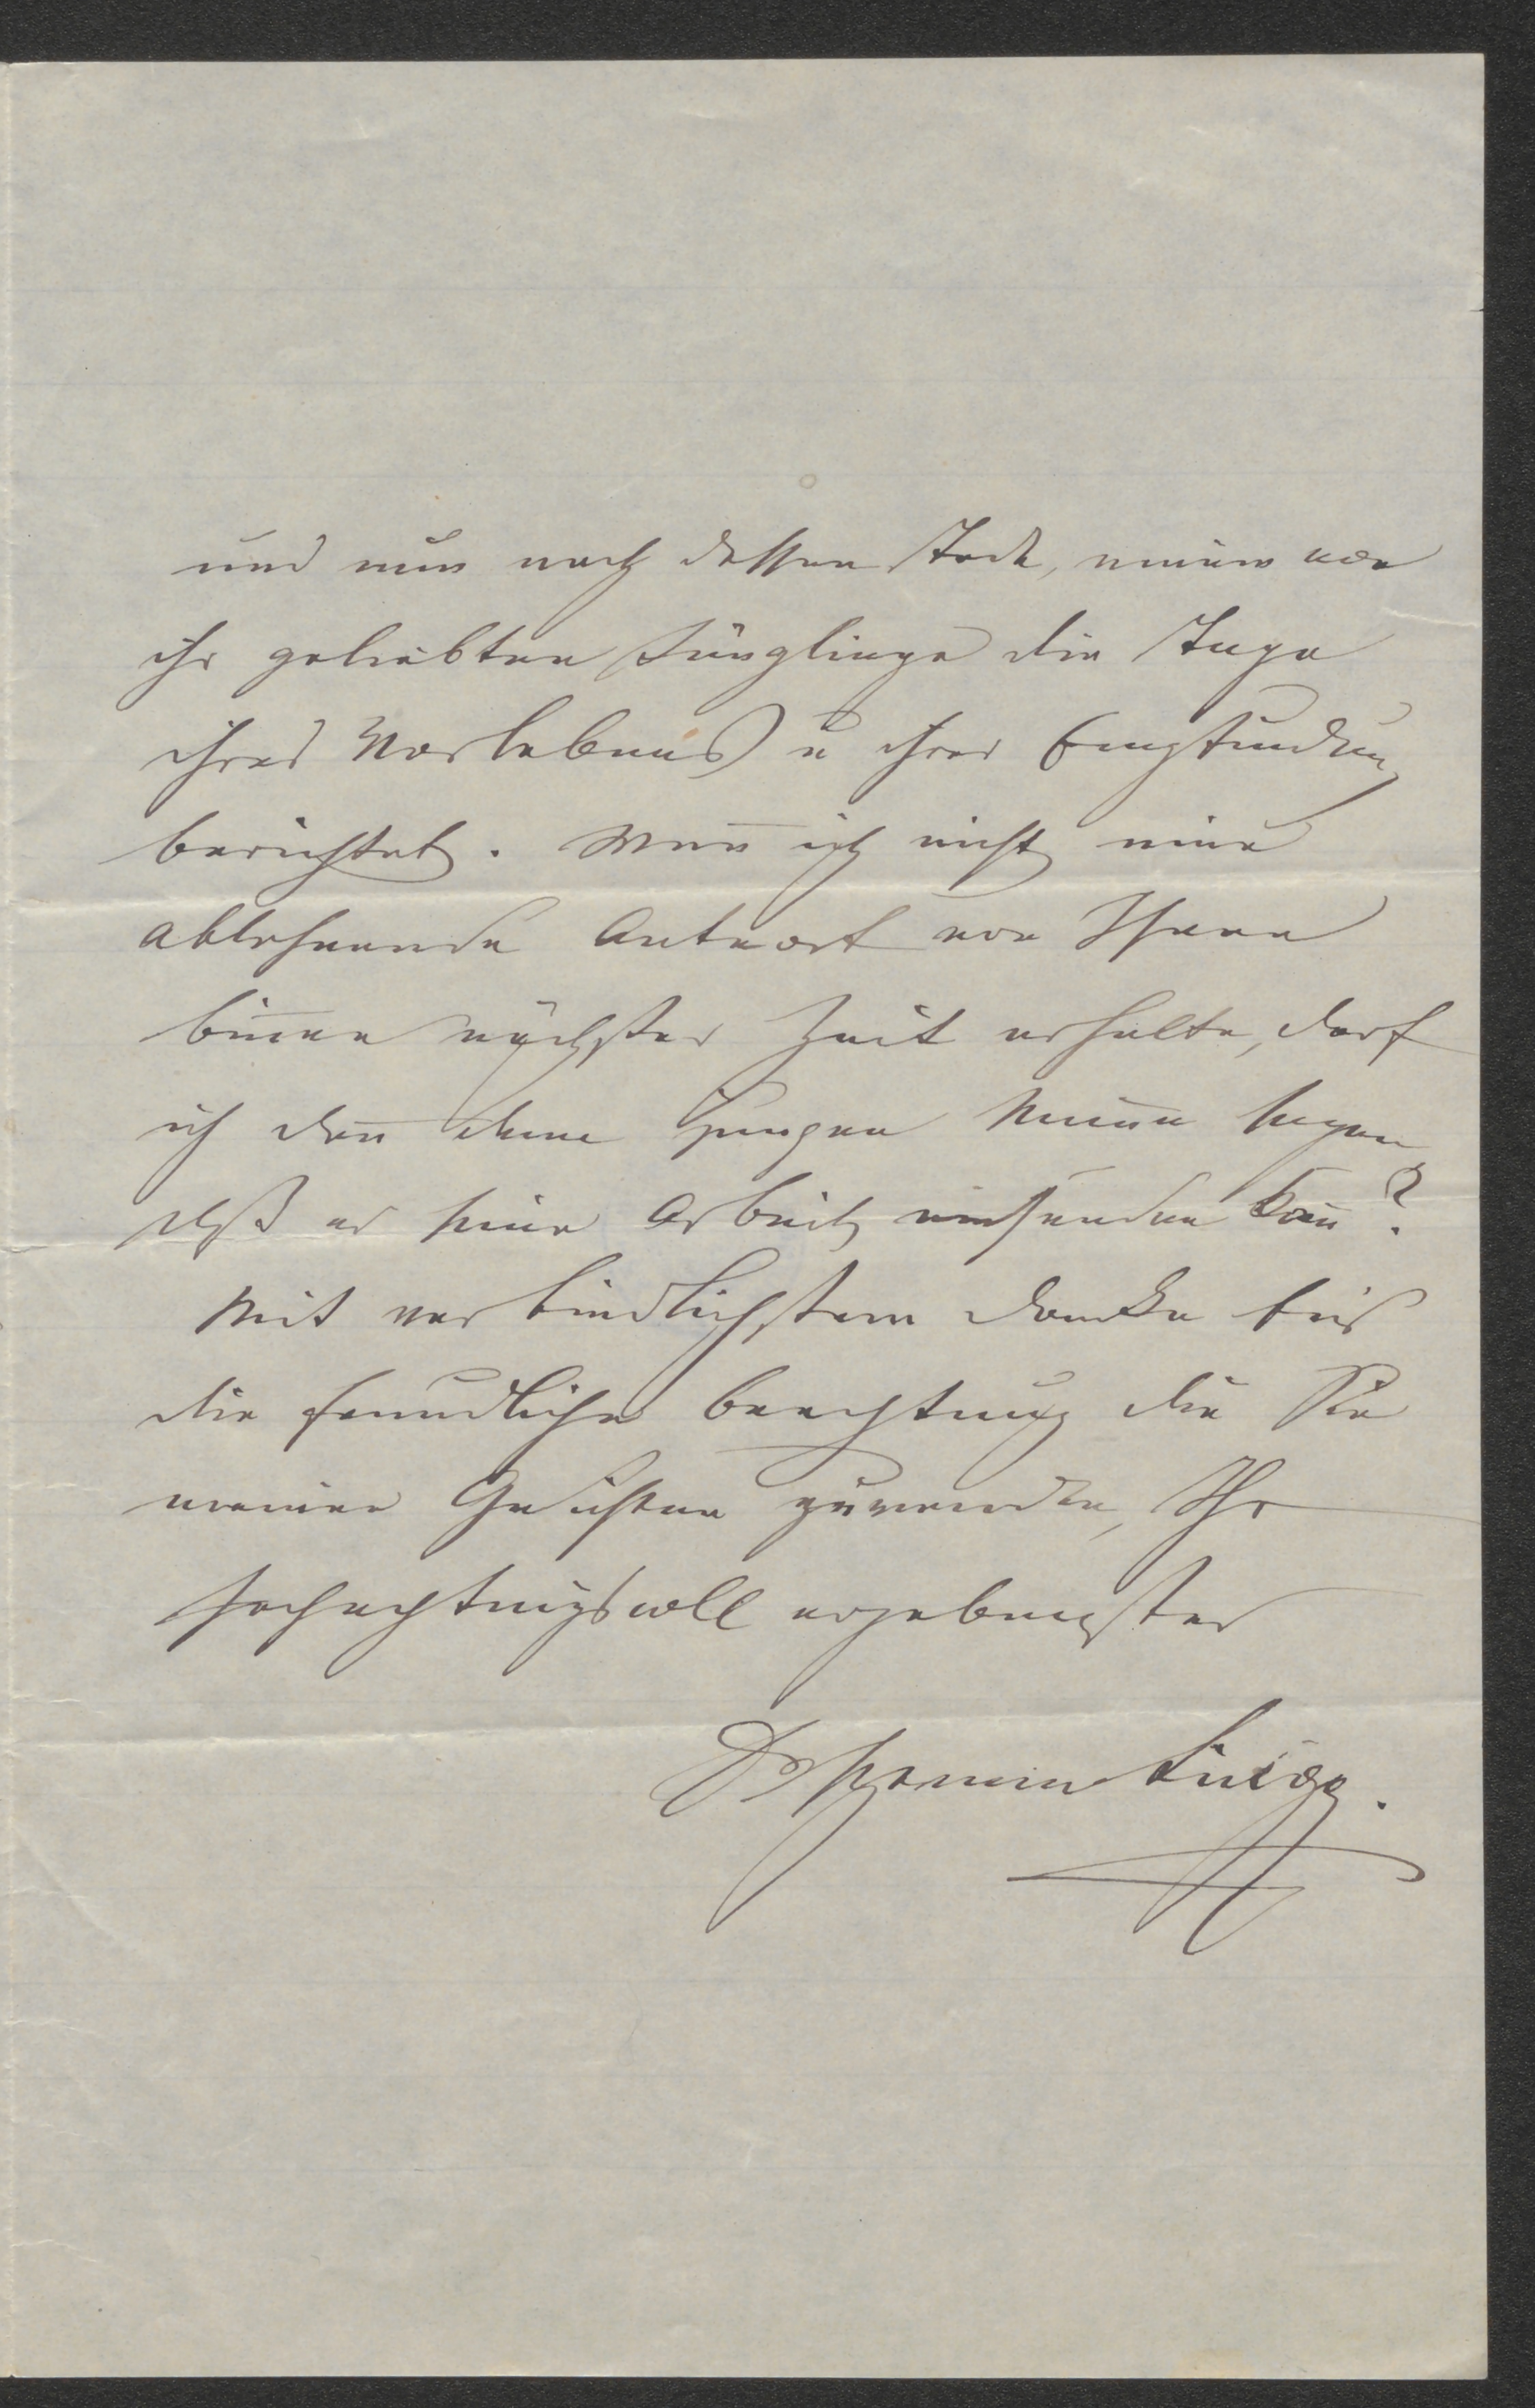 und nun nach dessen Tode, einem von
ihr geliebten Jünglinge die Tage
ihres Vorlebens u ihrer
berichtet. Wen̄ ich nicht eine
ablehnende Antwort von Ihnen
bin̄en nächster Zeit erhalte, darf
ich dan̄ dem jungen Man̄e sagen
daß er seine Arbeit einsenden kan̄?
Mit verbindlichstem Danke für
die freundliche Beachtung die Sie
meinen Gedichten zuwenden, Ihr
hochachtungsvoll ergebenster
Dr Hermann Lingg.